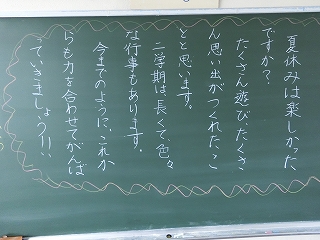 夏休みは楽しかった
ですか？
たくさん遊びたくさ
ん思い出がつくれたこ
とと思います。
二学期は長くて色々
な行事もあります。
今までのように、これか
らも力を合わせてがんば
っていきましょう!!